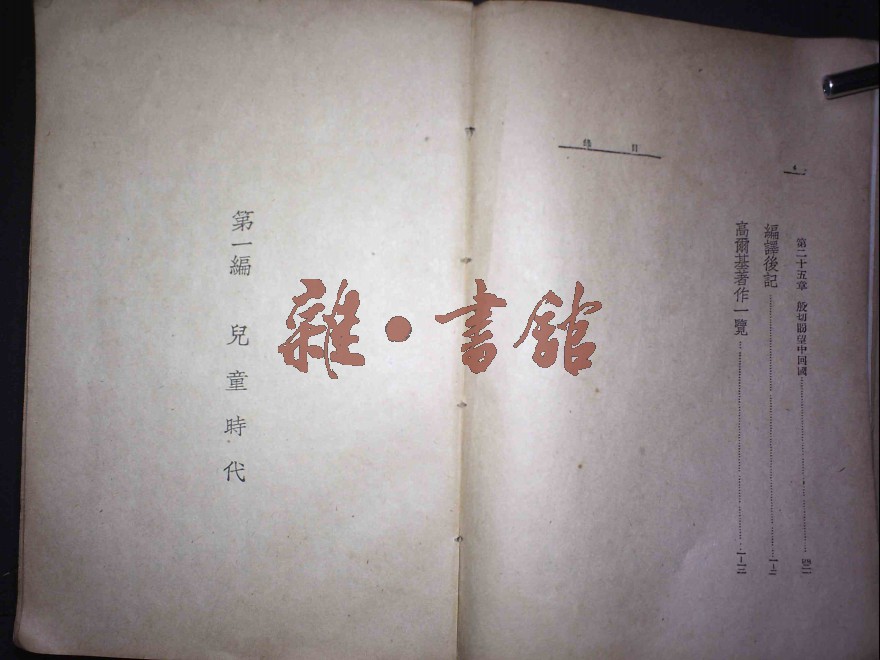 目錄
第二十五章 殷切期望中回國
編譯後記
一—二
高爾基著作一覽
一—三
第一編 兒童時代
雜•書館